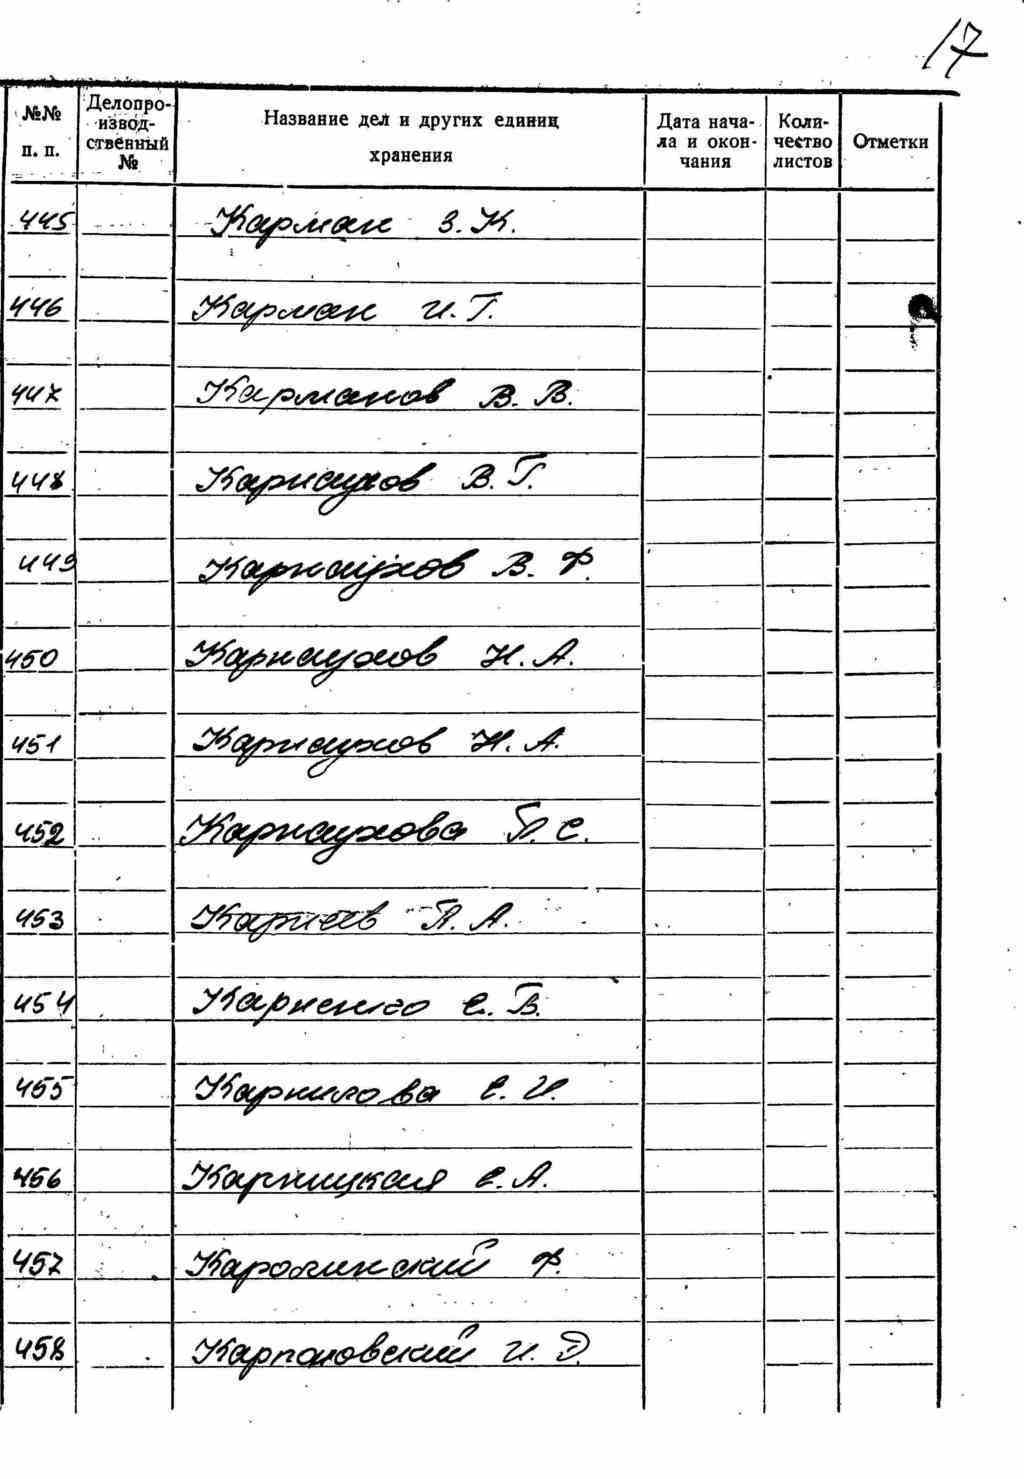 17
№№ п. п.
Делопро-
извод-
ственный
№
Название дел и других единиц
хранения
Дата нача-
ла и окон-
чания
Коли-
чество
листов
Отметки
445 Карман З. К.
446 Карман И. Г.
447 Карманов В. В.
448 Карнаухов В. Г.
449 Карнаухов В. Ф.
450 Карнаухов Н. А.
451 Карнаухов Н. А.
452 Карнаухова П. С.
453 Карнеев П. А.
454 Карненко Е. В.
455 Карнилова Е. И.
456 Карницкая Е. А.
457 Каролинский Ф.
458 И. Д.